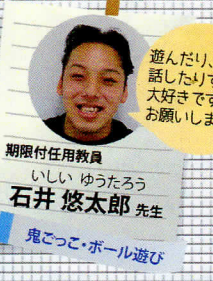 遊んだり、
話したりす
大好きです
お願いしま
期限付任用教員
いしい ゆうたろう
石井 悠太郎 先生
鬼ごっこ・ボール遊び